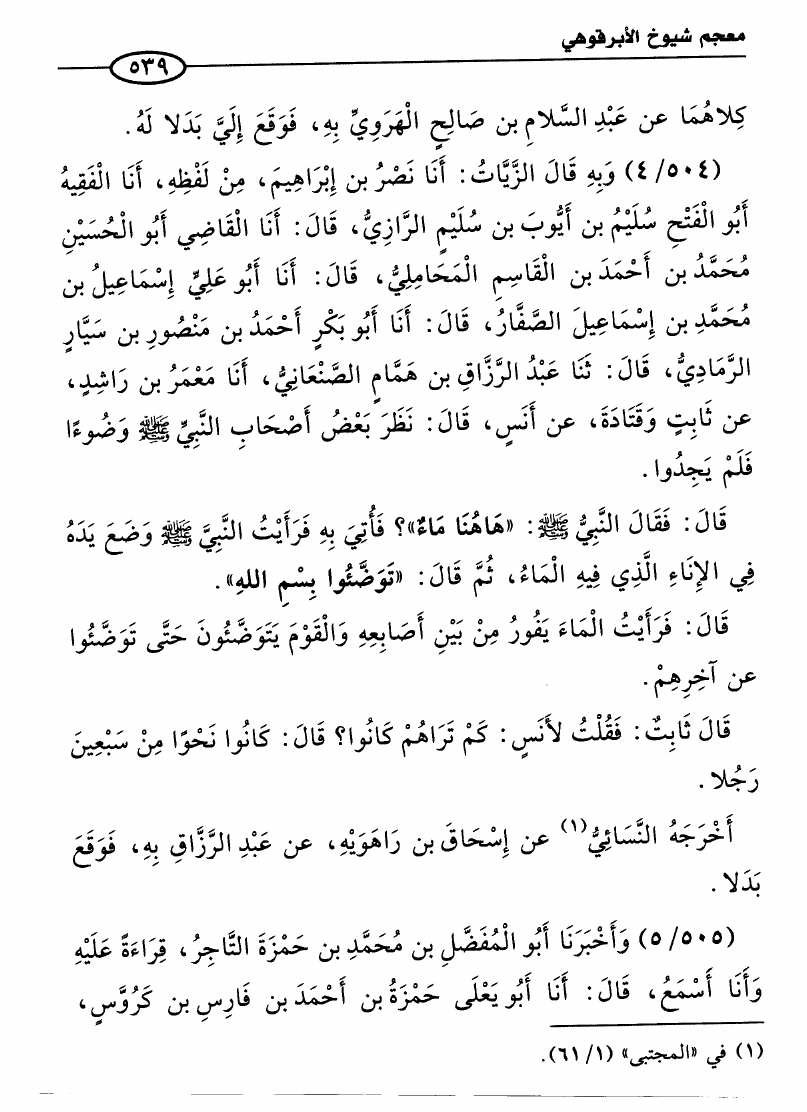 معجم شيوخ الأبرقوهي
٥٣٩
كِلاهُمَا عن عَبْدِ السَّلامِ بن صَالِحٍ الْهَرَوِيِّ بِهِ، فَوَقَعَ إِلَيَّ بَدَلا لَهُ.
(٤/٥٠٤) وَبِهِ قَالَ الزَّيَّاتُ: أَنَا نَصْرُ بن إِبْرَاهِيمَ، مِنْ لَفْظِهِ، أَنَا الْفَقِيهُ
أَبُو الْفَتْحِ سُلَيْمُ بن أَيُّوبَ بن سُلَيْمٍ الرَّازِيُّ، قَالَ: أَنَا الْقَاضِي أَبُو الْحُسَيْنِ
مُحَمَّدُ بن أَحْمَدَ بن الْقَاسِمِ الْمَحَامِلِيُّ، قَالَ: أَنَا أَبُو عَلِيٍّ إِسْمَاعِيلُ بن
مُحَمَّدِ بن إِسْمَاعِيلَ الصَّفَّارُ، قَالَ: أَنَا أَبُو بَكْرٍ أَحْمَدُ بن مَنْصُورِ بن سَيَّارٍ
الرَّمَادِيُّ، قَالَ: ثَنَا عَبْدُ الرَّزَّاقِ بن هَمَّامٍ الصَّنْعَانِيُّ، أَنَا مَعْمَرُ بن رَاشِدٍ،
عن ثَابِتٍ وَقَتَادَةَ، عن أَنَسٍ، قَالَ: نَظَرَ بَعْضُ أَصْحَابِ النَّبِيِّ ﷺ وَضُوءًا
فَلَمْ يَجِدُوا.
قَالَ: فَقَالَ النَّبِيُّ ﷺ: «هَاهُنَا مَاءٌ»؟ فَأُتِيَ بِهِ فَرَأَيْتُ النَّبِيَّ ﷺ وَضَعَ يَدَهُ
فِي الإِنَاءِ الَّذِي فِيهِ الْمَاءُ، ثُمَّ قَالَ: «تَوَضَّئُوا بِسْمِ اللهِ».
قَالَ: فَرَأَيْتُ الْمَاءَ يَفُورُ مِنْ بَيْنِ أَصَابِعِهِ وَالْقَوْمَ يَتَوَضَّئُونَ حَتَّى تَوَضَّئُوا
عن آخِرِهِمْ.
قَالَ ثَابِتٌ: فَقُلْتُ لأَنَسٍ: كَمْ تَرَاهُمْ كَانُوا؟ قَالَ: كَانُوا نَحْوًا مِنْ سَبْعِينَ
رَجُلا.
أَخْرَجَهُ النَّسَائِيُّ(١) عن إِسْحَاقَ بن رَاهَوَيْهِ، عن عَبْدِ الرَّزَّاقِ بِهِ، فَوَقَعَ
بَدَلا.
(٥/٥٠٥) وَأَخْبَرَنَا أَبُو الْمُفَضَّلِ بن مُحَمَّدِ بن حَمْزَةَ التَّاجِرُ، قِرَاءَةً عَلَيْهِ
وَأَنَا أَسْمَعُ، قَالَ: أَنَا أَبُو يَعْلَى حَمْزَةُ بن أَحْمَدَ بن فَارِسِ بن كَرُوَّسٍ،
(١) في «المجتبى» (١/ ٦١).